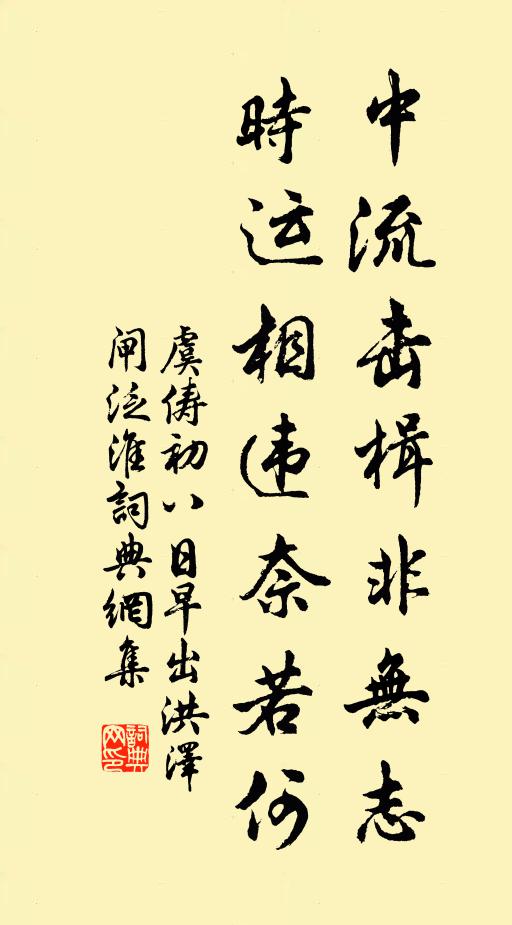 中流击楫非無志
時运相违奈若何
虞俦初八日早出洪澤
闸泛淮詞典網集
詞典
网印